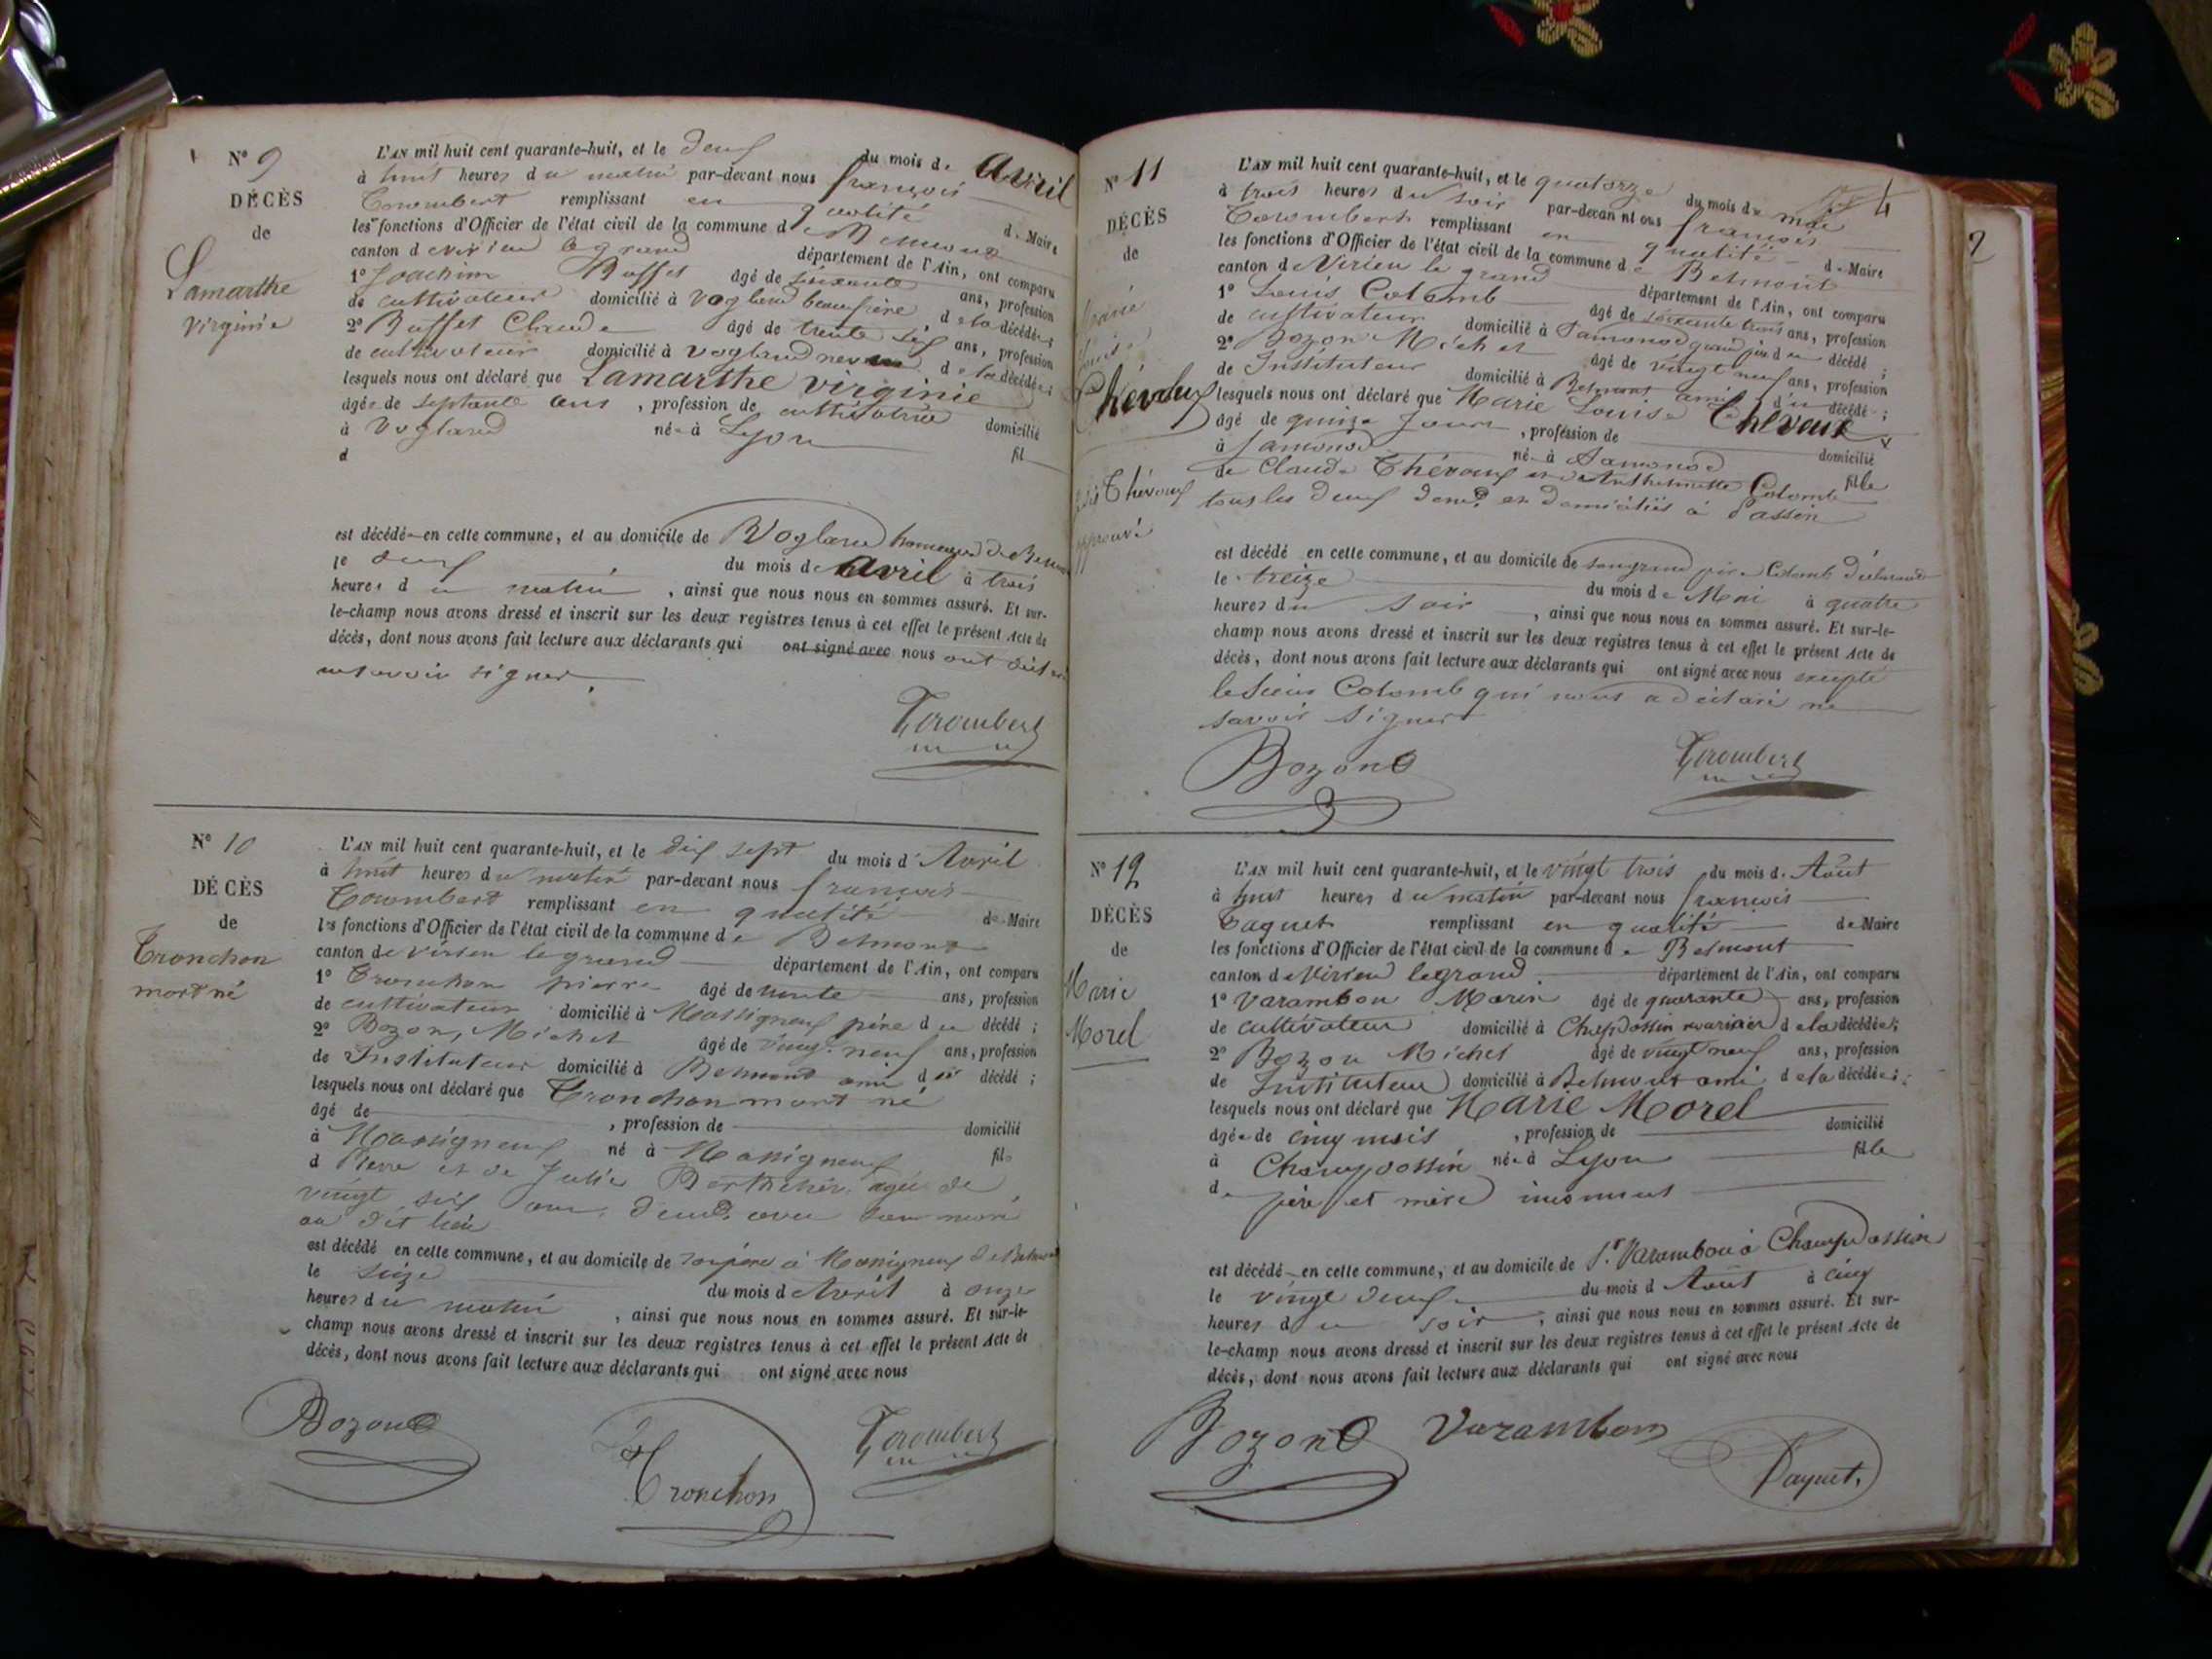 N° 9
DÉCÈS
de
Lamarthe
virginie
L'AN mil huit cent quarante-huit, et le deux du mois de Avril
à huit heures du matin par-devant nous françois
Corombert remplissant en qualité de Maire
les fonctions d'Officier de l'état civil de la commune de Belmont
canton de virieu le grand département de l'Ain, ont comparu
1° Joachim Buffet âgé de soixante ans, profession
de cultivateur domicilié à Vogland beaufrère de la décédée;
2° Buffet Claude âgé de trente six ans, profession
de cultivateur domicilié à vogland neveu de la décédée;
lesquels nous ont déclaré que Lamarthe virginie
âgée de septante ans, profession de cultivatrice domicilié
à Vogland née à Lyon fil
d
est décédée en cette commune, et au domicile de Vogland hameau de Belmont
le deux du mois de Avril à trois
heures du matin, ainsi que nous nous en sommes assuré. Et sur-
le-champ nous avons dressé et inscrit sur les deux registres tenus à cet effet le présent Acte de
décès, dont nous avons fait lecture aux déclarants qui ont signé avec nous ont dit
ne savoir signer
Corombert
N° 10
DÉCÈS
de
Tronchon
mort né
L'AN mil huit cent quarante-huit, et le dix sept du mois d'Avril
à huit heures du matin par-devant nous françois
Corombert remplissant en qualité de Maire
les fonctions d'Officier de l'état civil de la commune de Belmont
canton de virieu le grand département de l'Ain, ont comparu
1° Tronchon pierre âgé de trente ans, profession
de cultivateur domicilié à Massigneux père du décédé;
2° Bozon, Michel âgé de vingt neuf ans, profession
de Instituteur domicilié à Belmont ami du décédé;
lesquels nous ont déclaré que Tronchon mort né
âgé de , profession de domicilié
à Massigneux né à Massigneux fils
d Pierre et de Julie Berthelier, agée de
vingt six ans, demt. avec son mari
au dit lieu
est décédé en cette commune, et au domicile de son père à Massigneux de Belmont
le seize du mois d Avril à onze
heures du matin, ainsi que nous nous en sommes assuré. Et sur-le-
champ nous avons dressé et inscrit sur les deux registres tenus à cet effet le présent Acte de
décès, dont nous avons fait lecture aux déclarants qui ont signé avec nous
Bozond
Tronchon
Corombert
4
2
N° 11
DÉCÈS
de
Marie
Louise
Chévaux
Chévoux
approuvé
L'AN mil huit cent quarante-huit, et le quatorze du mois de mai
à trois heures du soir par-devan nt ous françois
Corombert remplissant en qualité de Maire
les fonctions d'Officier de l'état civil de la commune de Belmont
canton de Virieu le grand département de l'Ain, ont comparu
1° Louis Colomb âgé de soixante trois ans, profession
de cultivateur domicilié à Samonod grand père du décédé;
2° Bozon Michel âgé de vingt neuf ans, profession
de Instituteur domicilié à Belmont ami du décédé;
lesquels nous ont déclaré que Marie Louise Chevoux
âgé de quinze jours, profession de domicilié
à Samonod née à Samonod fille
de Claude Chévoux et de Anthelmette Colomb
tous les deux demt. et domiciliés à Passin
est décédé en cette commune, et au domicile de son grand père Colomb déclarant
le treize du mois de Mai à quatre
heures du soir, ainsi que nous nous en sommes assuré. Et sur-le-
champ nous avons dressé et inscrit sur les deux registres tenus à cet effet le présent Acte de
décès, dont nous avons fait lecture aux déclarants qui ont signé avec nous excepté
le sieur Colomb qui nous a déclaré ne
savoir signer
Bozond
Corombert
N° 12
DÉCÈS
de
Marie
Morel
L'AN mil huit cent quarante-huit, et le vingt trois du mois d. Août
à huit heures du matin par-devant nous françois
Paquet remplissant en qualité de Maire
les fonctions d'Officier de l'état civil de la commune de Belmont
canton de Virieu le grand département de l'Ain, ont comparu
1° Varambon Marin âgé de quarante ans, profession
de cultivateur domicilié à Champdossin de la décédée;
2° Bozon Michel âgé de vingt neuf ans, profession
de Instituteur domicilié à Belmont ami de la décédée;
lesquels nous ont déclaré que Marie Morel
âgée de cinq mois, profession de domicilié
à Champdossin née à Lyon fille
de père et mère inconnus
est décédée en cette commune, et au domicile de Sr. Varambon à Champdossin
le vingt deux du mois d Août à cinq
heures du soir, ainsi que nous nous en sommes assuré. Et sur-
le-champ nous avons dressé et inscrit sur les deux registres tenus à cet effet le présent Acte de
décès, dont nous avons fait lecture aux déclarants qui ont signé avec nous
Bozond
Varambon
Paquet